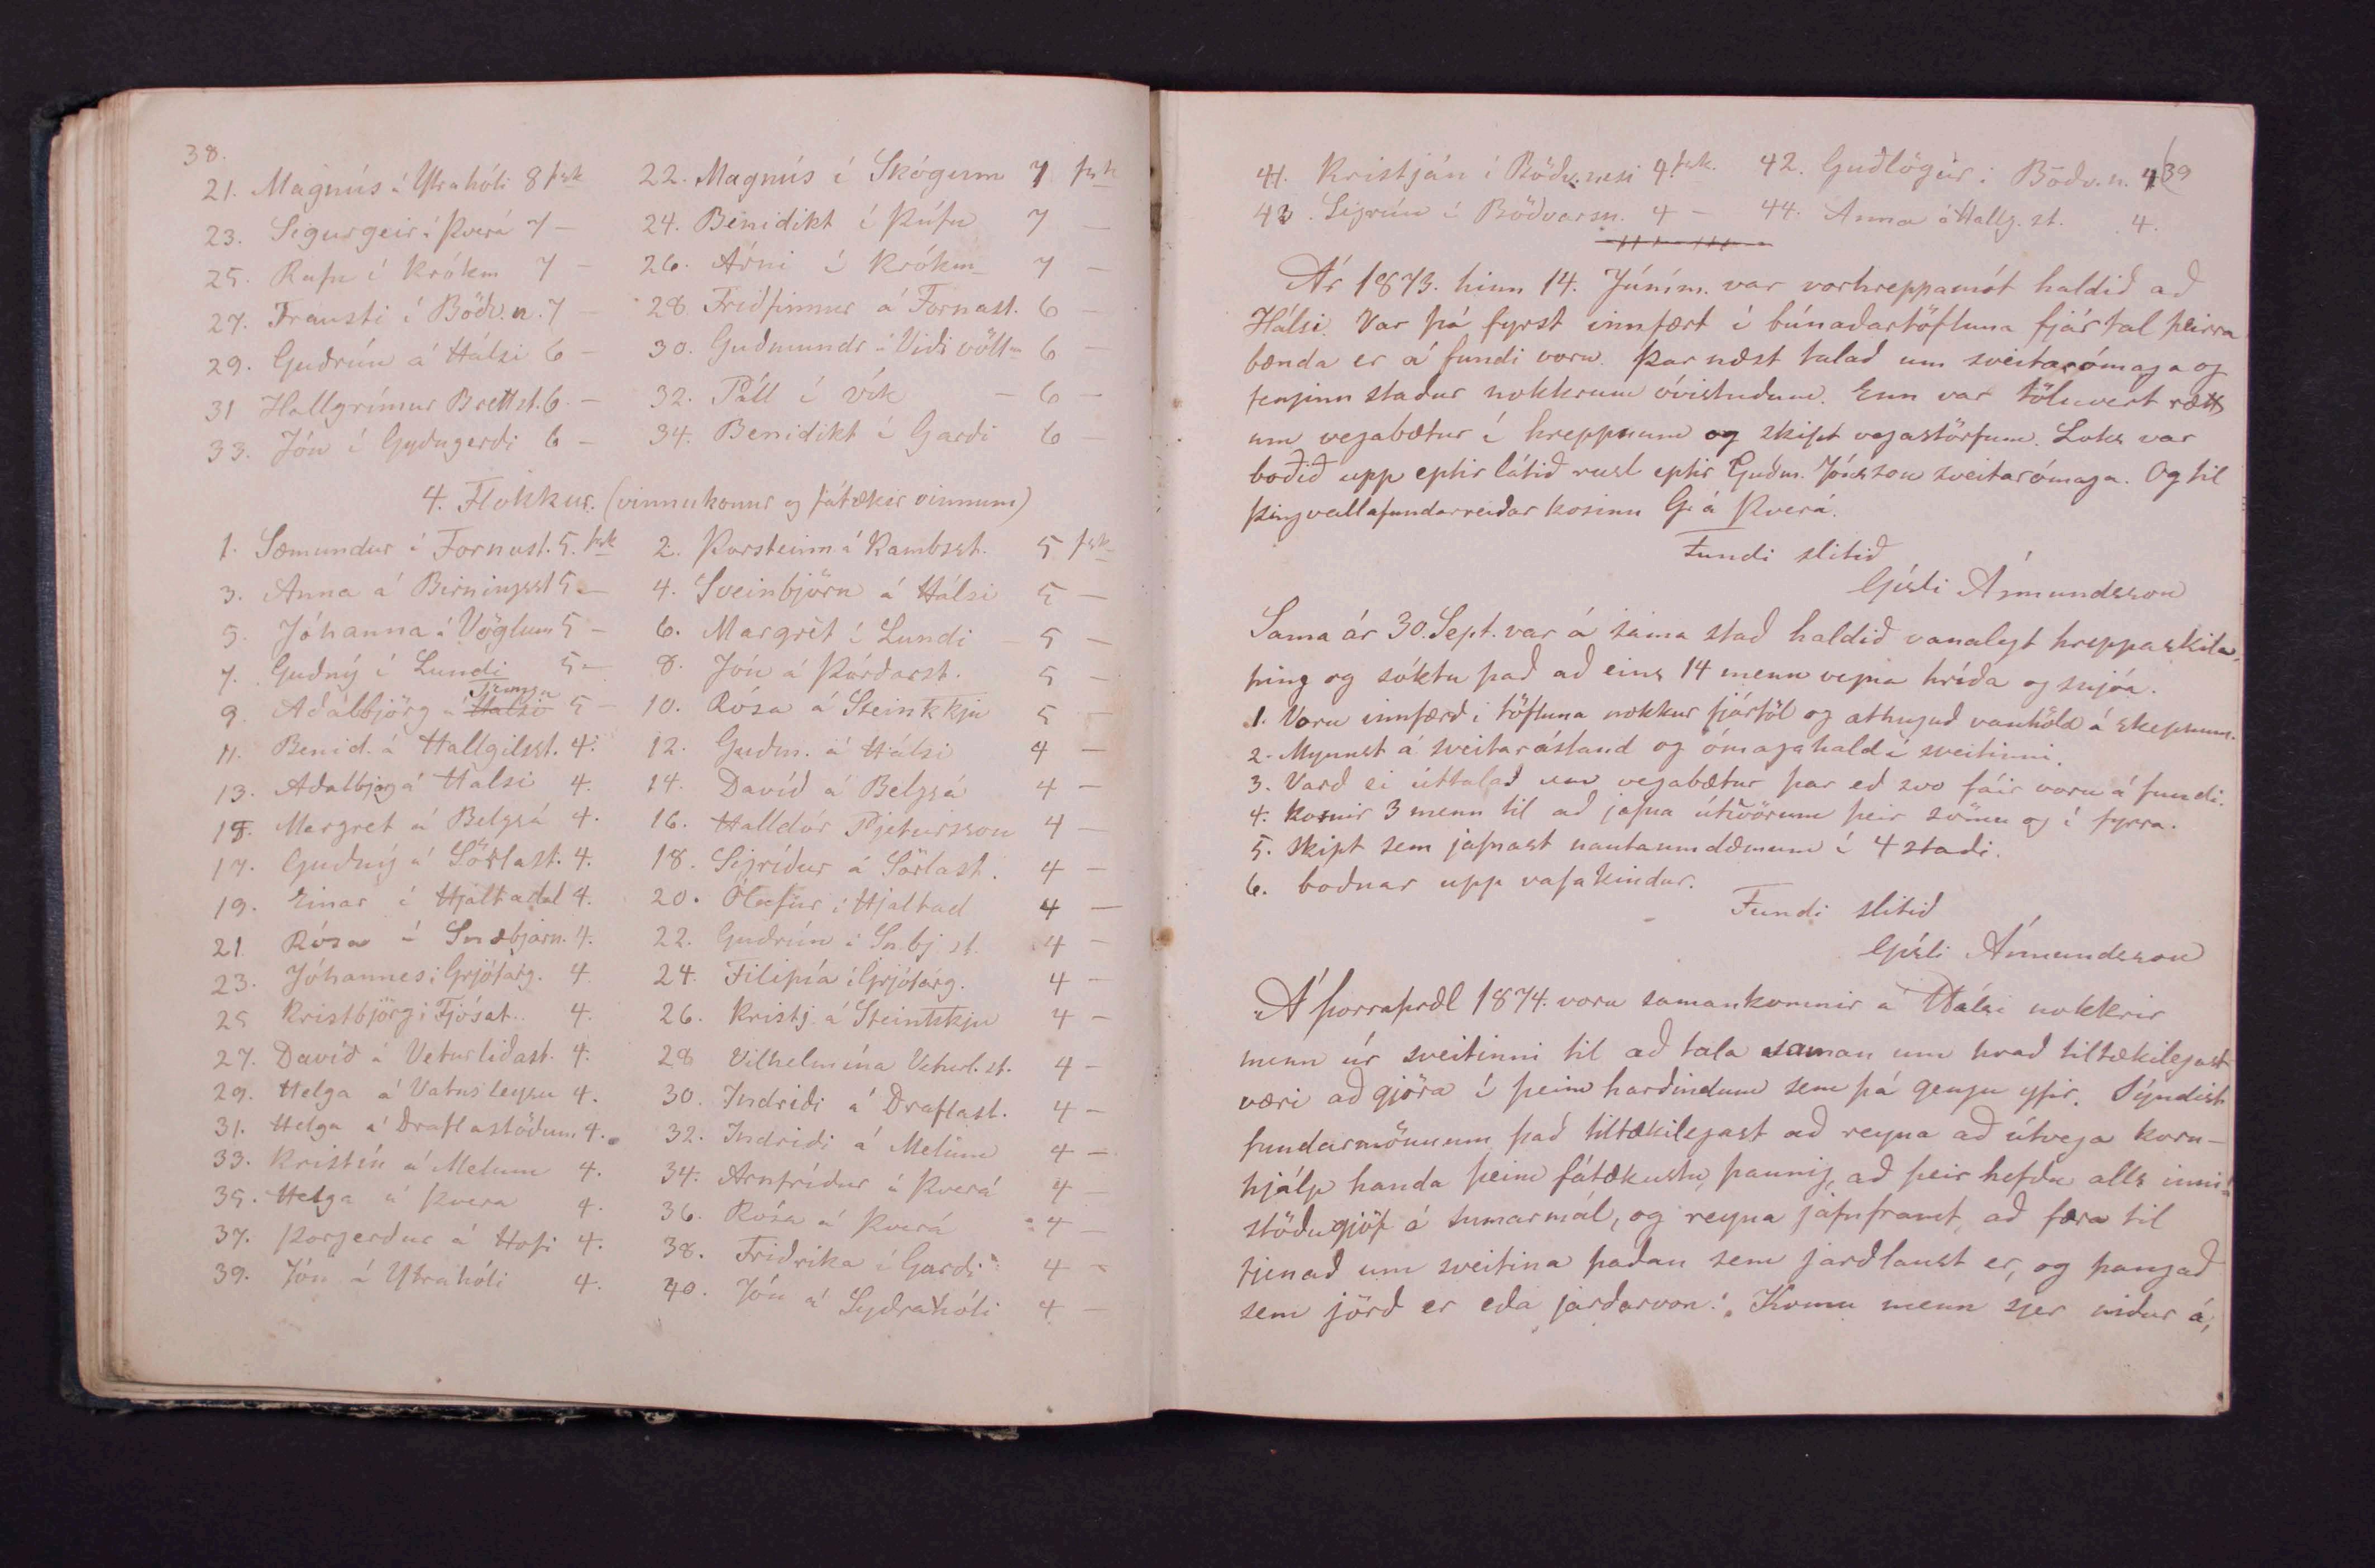 38.
21. Magnús á Ytrahóli 8 fsk 22. Magnús í Skógum 7 fsk
23. Sigurgeir í Þverá 7 — 24. Benidikt í Þúfu 7 —
25. Rafn í Krókum 7 — 26. Árni í Krókum 7 —
27. Trausti í Böðv.n. 7 — 28. Friðfinnur á Fornast. 6 —
29. Guðrún á Hálsi 6 — 30. Guðmundr í Víðivöllm 6 —
31 Hallgrímur Brettst. 6 — 32. Páll í Vík — 6 —
33. Jón í Gyðugerði 6 — 34. Benidikt í Garði 6 —
4. Flokkur. (vinnukonur og fátækir vinnum)
1. Sæmundur í Fornast. 5. fsk 2. Þorsteinn á Kambsst. 5 fsk
3. Anna á Birningsst 5 — 4. Sveinbjörn á Hálsi 5 —
5. Jóhanna í Vöglum 5 — 6. Margrèt í Lundi 5 —
7. Guðný í Lundi 5 — 8. Jón á Þórðarst. 5 —
9. Aðalbjörg á Hálsi 5 — 10. Rósa á Steinkkju 5 —
11. Benid. á Hallgilsst. 4. 12. Guðm. á Hálsi 4 —
13. Aðalbjog á Halsi 4. 14. Davíð á Belgsá 4 —
15. Margret á Belgsá 4. 16. Halldór Pjetursson 4 —
17. Guðný á Sörlast. 4. 18. Sigríður á Sörlast. 4 —
19. Einar í Hjaltadal 4. 20. Ólafur í Hjaltad 4 —
21 Rósa í Snæbjarn. 4. 22. Guðrún í Sn.bj.st. 4 —
23. Jóhannes í Grjótárg. 4 24. Filipía í Grjótárg. 4 —
25 Kristbjörg í Fjósat. 4. 26. Kristj. á Steinkkju 4 —
27. Davíð á Veturliðast. 4. 28 Vilhelmína Veturl.st. 4 —
29. Helga á Vatnsleysu 4. 30. Indriði á Draflast. 4 —
31. Helga á Draflastöðum 4. 32. Indriði á Melum 4 —
33. Kristín á Melum 4. 34. Arnfríður á Þverá 4 —
35. Helga á Þvera 4. 36. Rósa á Þverá 4 —
37. Þorgerður á Hofi 4. 38. Friðrika í Garði 4 —
39. Jón á Ytrahóli 4. 40. Jón á Syðrahóli 4 —
39
41. Kristján í Böðv.nesi 4 fsk. 42. Guðlögur í Böðv.n. 4
43. Sigrún í Böðvarsn. 4 — 44. Anna á Hallg.st. 4.
Ár 1873. hinn 14. Júním. var vorhreppamót haldið að
Hálsi. Var þá fyrst innfært í búnaðartöfluna fjártal þeirra
bænda er á fundi voru. Þar næst talað um sveitarómaga og
fenginn staður nokkrum óvistuðum. Enn var töluvert rætt
um vegabætur í hreppnum og skipt vegastörfum. Loks var
boðið upp eptir látið rusl eptir Guðm. Jónsson sveitarómaga. Og til
þingvallafundarreiðar kosinn G. á Þverá.
Fundi slitið
Gísli Ásmundsson
Sama ár 30. Sept. var á sama stað haldið vanalegt hreppaskila-
þing og sóktu það að eins 14 menn vegna hríða og snjóa.
1. Voru innfærð í töfluna nokkur fjártöl og athugað vanhöld á skepnum.
2. Mynnst á sveitarástand og ómagahald í sveitinni.
3. Varð ei úttalað um vegabætur þar eð svo fáir voru á fundi.
4. Kosnir 3 menn til að jafna útsvörum þeir sömu og í fyrra.
5. Skipt sem jafnast nautaumdæmum í 4 staði.
6. boðnar upp vafakindur.
Fundi slitið
Gísli Ásmundsson
Á þorraþræl 1874. voru samankomnir á Hálsi nokkrir
menn úr sveitinni til að tala saman um hvað tiltækilegast
væri að gjöra í þeim harðindum sem þá gengu yfir. Sýndist
fundarmönnum það tiltækilegast að reyna að útvega korn-
hjálp handa þeim fátækustu, þannig, að þeir hefðu alls inni-
stöðugjöf á sumarmál, og reyna jafnframt, að færa til
fjenað um sveitina þaðan sem jarðlaust er, og þangað
sem jörð er eða jarðarvon. Komu menn sjer niður á,